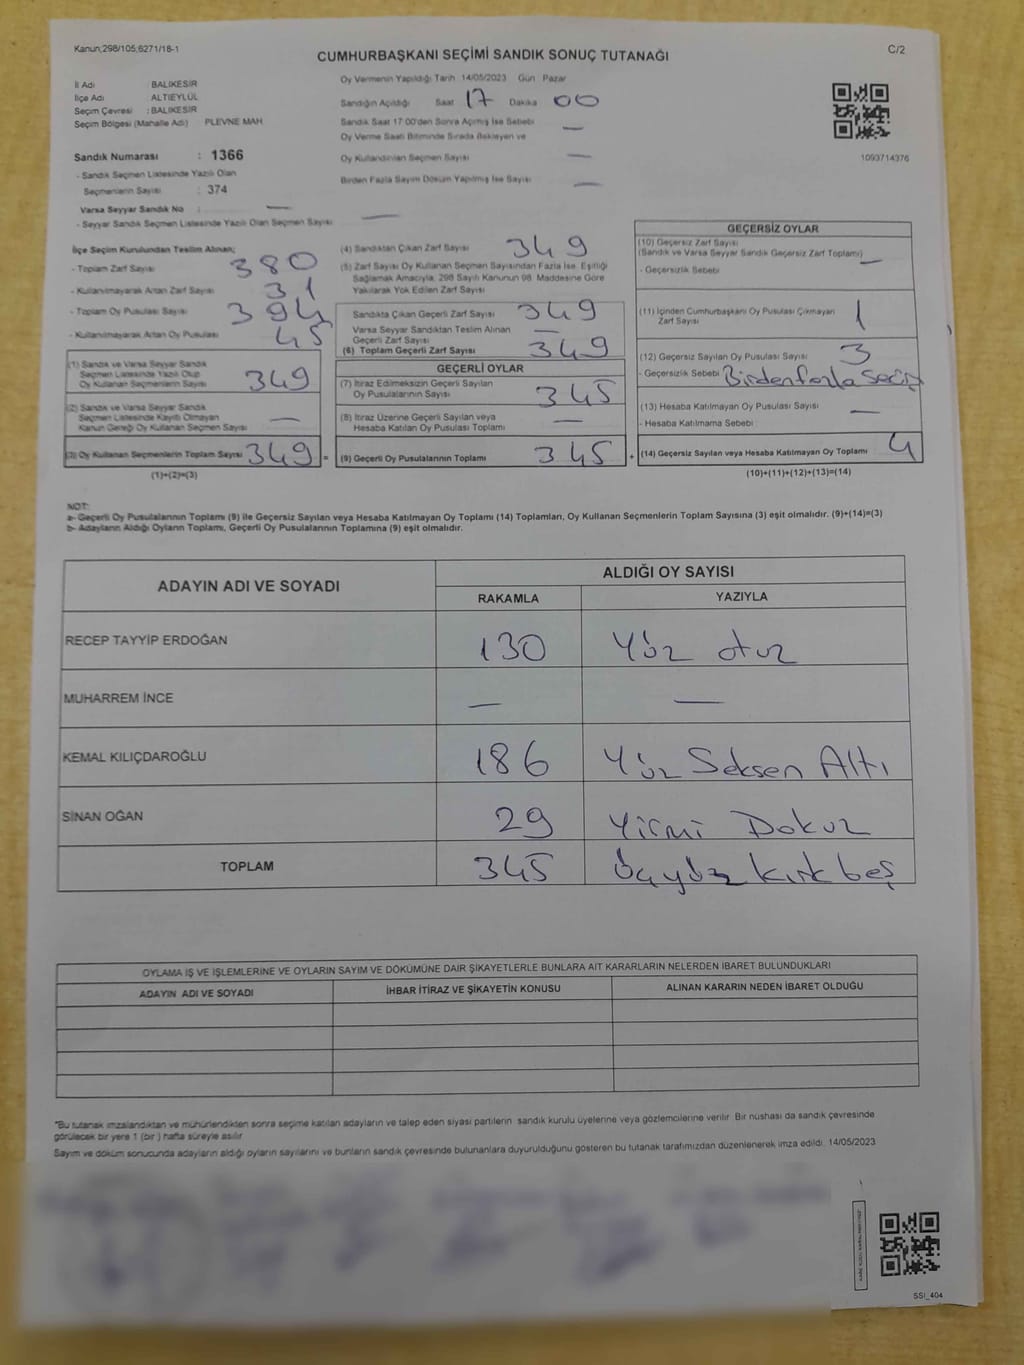 Kanun;298/105;6271/18-1
C/2
CUMHURBAŞKANI SEÇİMİ SANDIK SONUÇ TUTANAĞI
İl Adı : BALIKESİR
İlçe Adı : ALTIEYLÜL
Seçim Çevresi : BALIKESİR
Seçim Bölgesi (Mahalle Adı) PLEVNE MAH.
Sandık Numarası : 1366
- Sandık Seçmen Listesinde Yazılı Olan
Seçmenlerin Sayısı : 374
Varsa Seyyar Sandık No : —
- Seyyar Sandık Seçmen Listesinde Yazılı Olan Seçmen Sayısı —
Oy Vermenin Yapıldığı Tarih 14/05/2023 Gün Pazar
Sandığın Açıldığı Saat 17 Dakika 00
Sandık Saat 17:00'den Sonra Açılmış İse Sebebi —
Oy Verme Saati Bitiminde Sırada Bekleyen ve
Oy Kullandırılan Seçmen Sayısı —
Birden Fazla Sayım Döküm Yapılmış İse Sayısı —
1093714376
İlçe Seçim Kurulundan Teslim Alınan;
- Toplam Zarf Sayısı 380
- Kullanılmayarak Artan Zarf Sayısı 31
- Toplam Oy Pusulası Sayısı 394
- Kullanılmayarak Artan Oy Pusulası 45
(1) Sandık ve Varsa Seyyar Sandık
Seçmen Listesinde Yazılı Olup
Oy Kullanan Seçmenlerin Sayısı 349
(2) Sandık ve Varsa Seyyar Sandık
Seçmen Listesinde Kayıtlı Olmayan
Kanun Gereği Oy Kullanan Seçmen Sayısı —
(3) Oy Kullanan Seçmenlerin Toplam Sayısı 349 =
(1)+(2)=(3)
(4) Sandıktan Çıkan Zarf Sayısı 349
(5) Zarf Sayısı Oy Kullanan Seçmen Sayısından Fazla İse, Eşitliği
Sağlamak Amacıyla, 298 Sayılı Kanunun 98. Maddesine Göre
Yakılarak Yok Edilen Zarf Sayısı
Sandıkta Çıkan Geçerli Zarf Sayısı 349
Varsa Seyyar Sandıktan Teslim Alınan
Geçerli Zarf Sayısı —
(6) Toplam Geçerli Zarf Sayısı 349
GEÇERLİ OYLAR
(7) İtiraz Edilmeksizin Geçerli Sayılan
Oy Pusulalarının Sayısı 345
(8) İtiraz Üzerine Geçerli Sayılan veya
Hesaba Katılan Oy Pusulası Toplamı —
(9) Geçerli Oy Pusulalarının Toplamı 345 +
GEÇERSİZ OYLAR
(10) Geçersiz Zarf Sayısı
(Sandık ve Varsa Seyyar Sandık Geçersiz Zarf Toplamı) —
- Geçersizlik Sebebi
(11) İçinden Cumhurbaşkanı Oy Pusulası Çıkmayan
Zarf Sayısı 1
(12) Geçersiz Sayılan Oy Pusulası Sayısı 3
- Geçersizlik Sebebi Birden fazla Seçiş
(13) Hesaba Katılmayan Oy Pusulası Sayısı —
- Hesaba Katılmama Sebebi
(14) Geçersiz Sayılan veya Hesaba Katılmayan Oy Toplamı 4
(10)+(11)+(12)+(13)=(14)
NOT:
a- Geçerli Oy Pusulalarının Toplamı (9) ile Geçersiz Sayılan veya Hesaba Katılmayan Oy Toplamı (14) Toplamları, Oy Kullanan Seçmenlerin Toplam Sayısına (3) eşit olmalıdır. (9)+(14)=(3)
b- Adayların Aldığı Oyların Toplamı, Geçerli Oy Pusulalarının Toplamına (9) eşit olmalıdır.
ADAYIN ADI VE SOYADI
ALDIĞI OY SAYISI
RAKAMLA YAZIYLA
RECEP TAYYİP ERDOĞAN 130 Yüz otuz
MUHARREM İNCE — —
KEMAL KILIÇDAROĞLU 186 Yüz Seksen Altı
SİNAN OĞAN 29 Yirmi Dokuz
TOPLAM 345 Üçyüz kırk beş
OYLAMA İŞ VE İŞLEMLERİNE VE OYLARIN SAYIM VE DÖKÜMÜNE DAİR ŞİKAYETLERLE BUNLARA AİT KARARLARIN NELERDEN İBARET BULUNDUKLARI
ADAYIN ADI VE SOYADI İHBAR İTİRAZ VE ŞİKAYETİN KONUSU ALINAN KARARIN NEDEN İBARET OLDUĞU
*Bu tutanak imzalandıktan ve mühürlendikten sonra seçime katılan adayların ve talep eden siyasi partilerin sandık kurulu üyelerine veya gözlemcilerine verilir. Bir nüshası da sandık çevresinde
görülecek bir yere 1 (bir) hafta süreyle asılır.
Sayım ve döküm sonucunda adayların aldığı oyların sayılarını ve bunların sandık çevresinde bulunanlara duyurulduğunu gösteren bu tutanak tarafımızdan düzenlenerek imza edildi. 14/05/2023
SSI_404